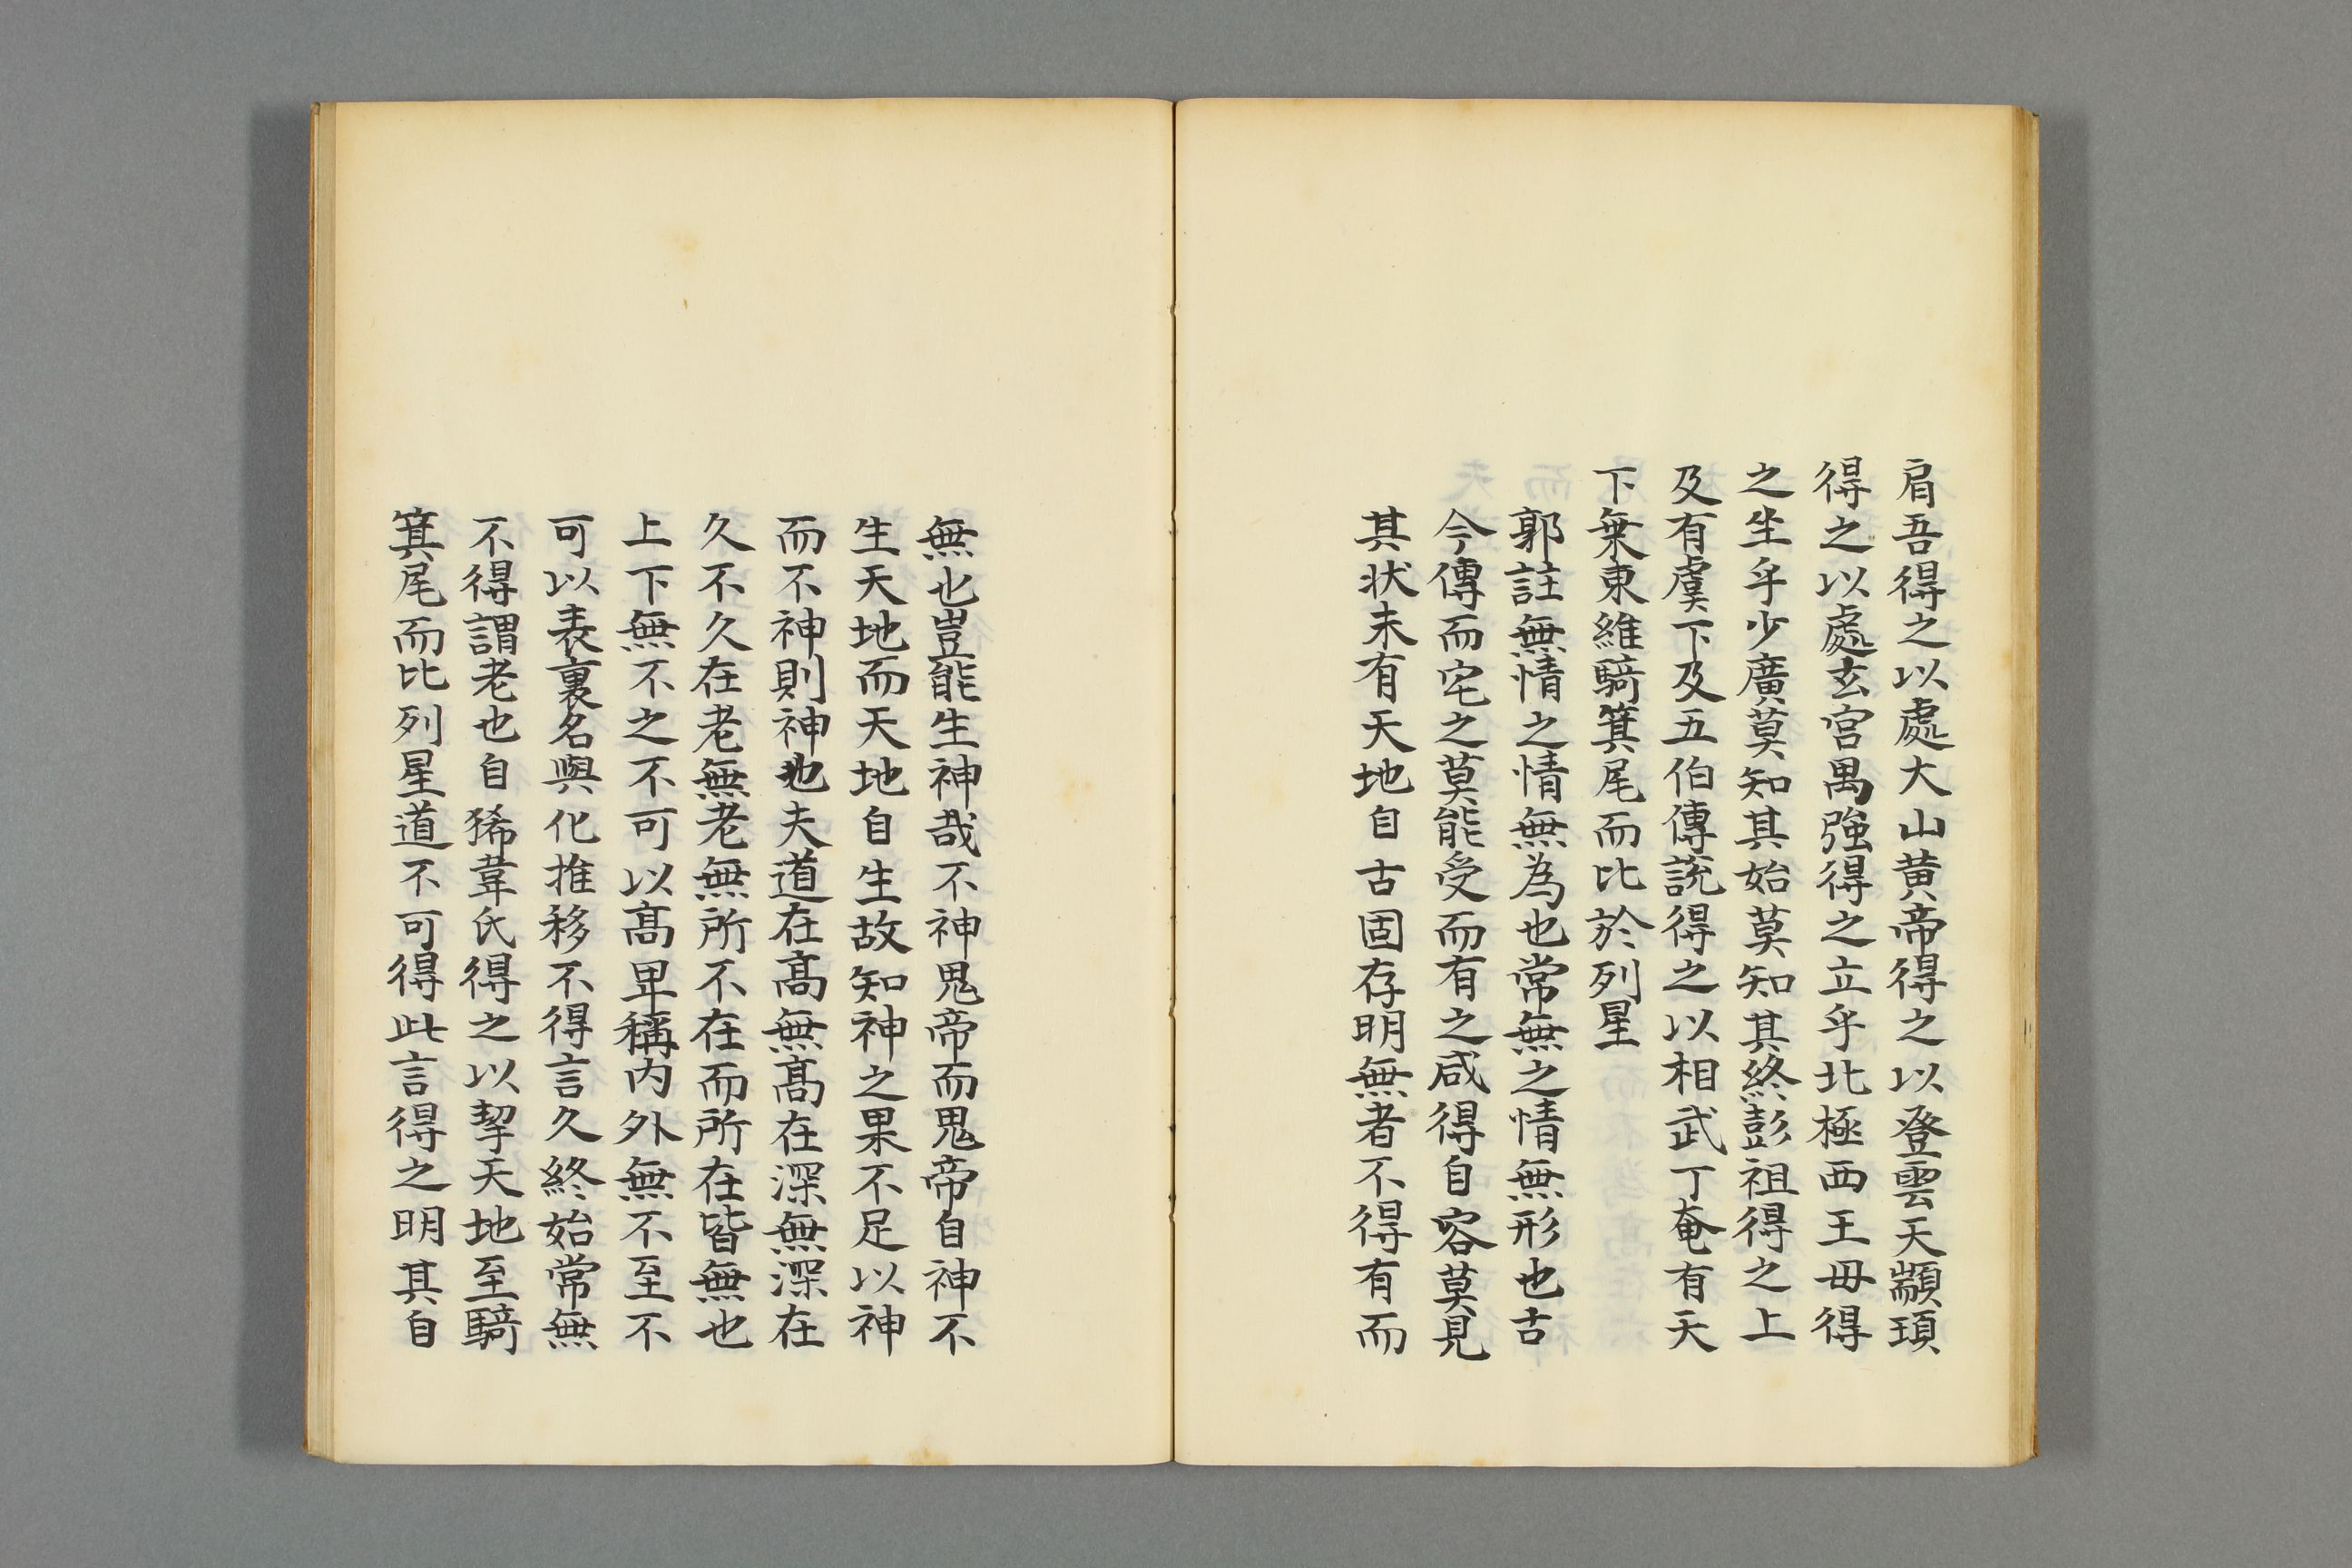 肩吾得之以處大山黄帝得之以登雲天顓頊
得之以處玄宮禺強得之立乎北極西王毋得
之坐乎少廣莫知其始莫知其終彭祖得之上
及有虞下及五伯傳說得之以相武丁奄有天
下乗東維騎箕尾而比於列星
郭註無情之情無為也常無之情無形也古
今傳而宅之莫能受而有之咸得自容莫見
其状未有天地自古固存明無者不得有而
無也豈能生神哉不神鬼帝而鬼帝自神不
生天地而天地自生故知神之果不足以神
而不神則神也夫道在髙無髙在深無深在
久不久在老無老無所不在而所在皆無也
上下無不之不可以髙卑稱內外無不至不
可以表裏名與化推移不得言久終始常無
不得謂老也自狶韋氏得之以挈天地至騎
箕尾而比列星道不可得此言得之明其自